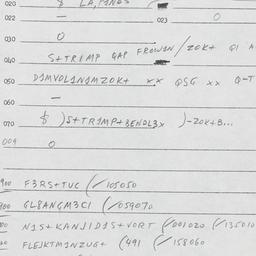 020 $ LA, PINOS
022 — 023 0
030 0
040 S+TR1MP GAP FROWIN/ZOK+ GI A
050 D1MVOL1N1MZOK+ xx QSG xx Q-T
060 —
070 $ )S+TR1MP+BENDL3X )-ZOK+B...
009 0
900 F3RS+TUC (/105050
900 GL8ANGM3CI (/059070
N1S+KANJ1D1S+VORT (/001020 (/135010
FLEJKTM1NZUG+ (491 (/158060